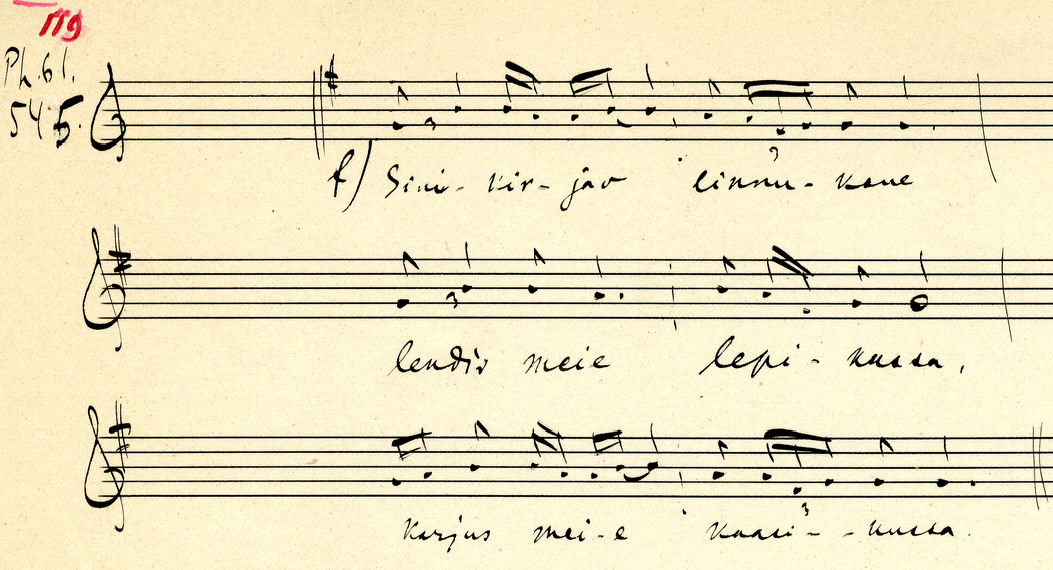 119
Ph. 61.
545.
f) Sini- kir- jav linnu- kane
3
lendis meie lepi- kussa,
karjus mei-e kaasi- - kussa.
3